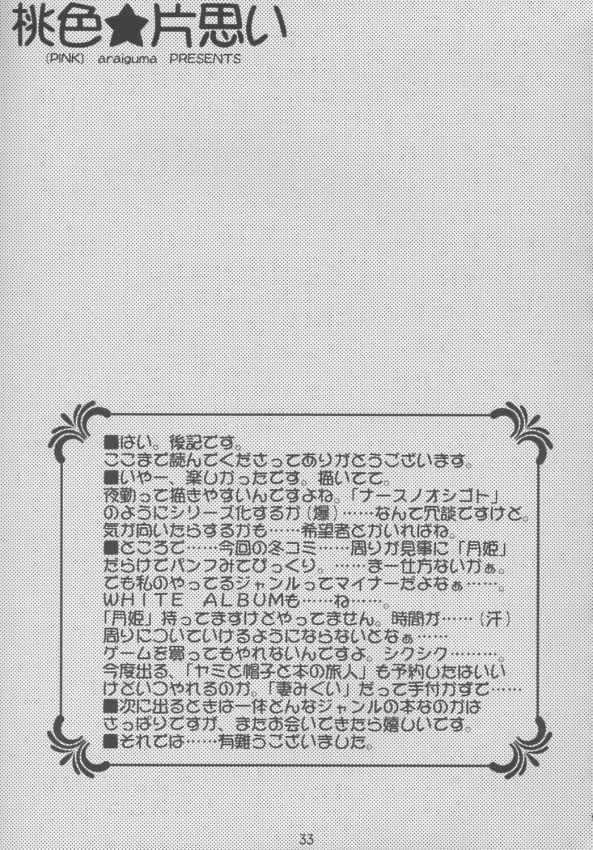 桃色★片思い
(PINK) araiguma PRESENTS
■はい。後記です。
ここまで読んでくださってありがとうございます。
■いやー、楽しかったです。描いてて。
夜勤って描きやすいんですよね。「ナースノオシゴト」
のようにシリーズ化するか(爆)……なんて冗談ですけど。
気が向いたらするかも……希望者とかいればね。
■ところで……今回の冬コミ……周りが見事に「月姫」
だらけでパンフみてびっくり。……まー仕方ないかぁ。
でも私のやってるジャンルってマイナーだよなぁ……。
WHITE ALBUMも……ね……。
「月姫」持ってますけどやってません。時間が……(汗)
周りについていけるようにならないとなぁ……
ゲームを買ってもやれないんですよ。シクシク………。
今度出る、「ヤミと帽子と本の旅人」も予約したはいい
けどいつやれるのか。「妻みぐい」だって手付かずで……
■次に出るときは一体どんなジャンルの本なのかは
さっぱりですが、またお会いできたら嬉しいです。
■それでは……有難うございました。
33